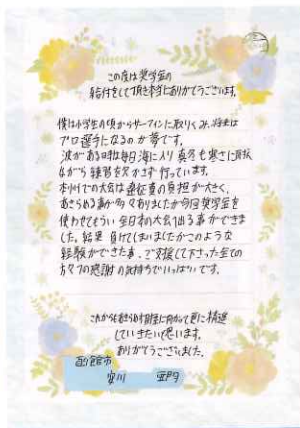 この度は奨学金の
給付をして頂き本当にありがとうございます。
僕は小学生の頃からサーフィンに取りくみ、将来は
プロ選手になるのが夢です。
波がある日は毎日海に入り真冬も寒さに負けず
ながら練習を欠かさず行っています。
本州での大会は遠征費の負担が大きく、
あきらめる事が多々ありましたが今回奨学金を
使わせてもらい全日本の大会に出る事ができま
した。結果負けてしまいましたがこのような
経験ができた事、ご支援して下さった全ての
方々への感謝の気持ちでいっぱいです。
これからもあきらめず目標に向かって更に精進
していきたいと思います。
ありがとうございました。
函館市
安川